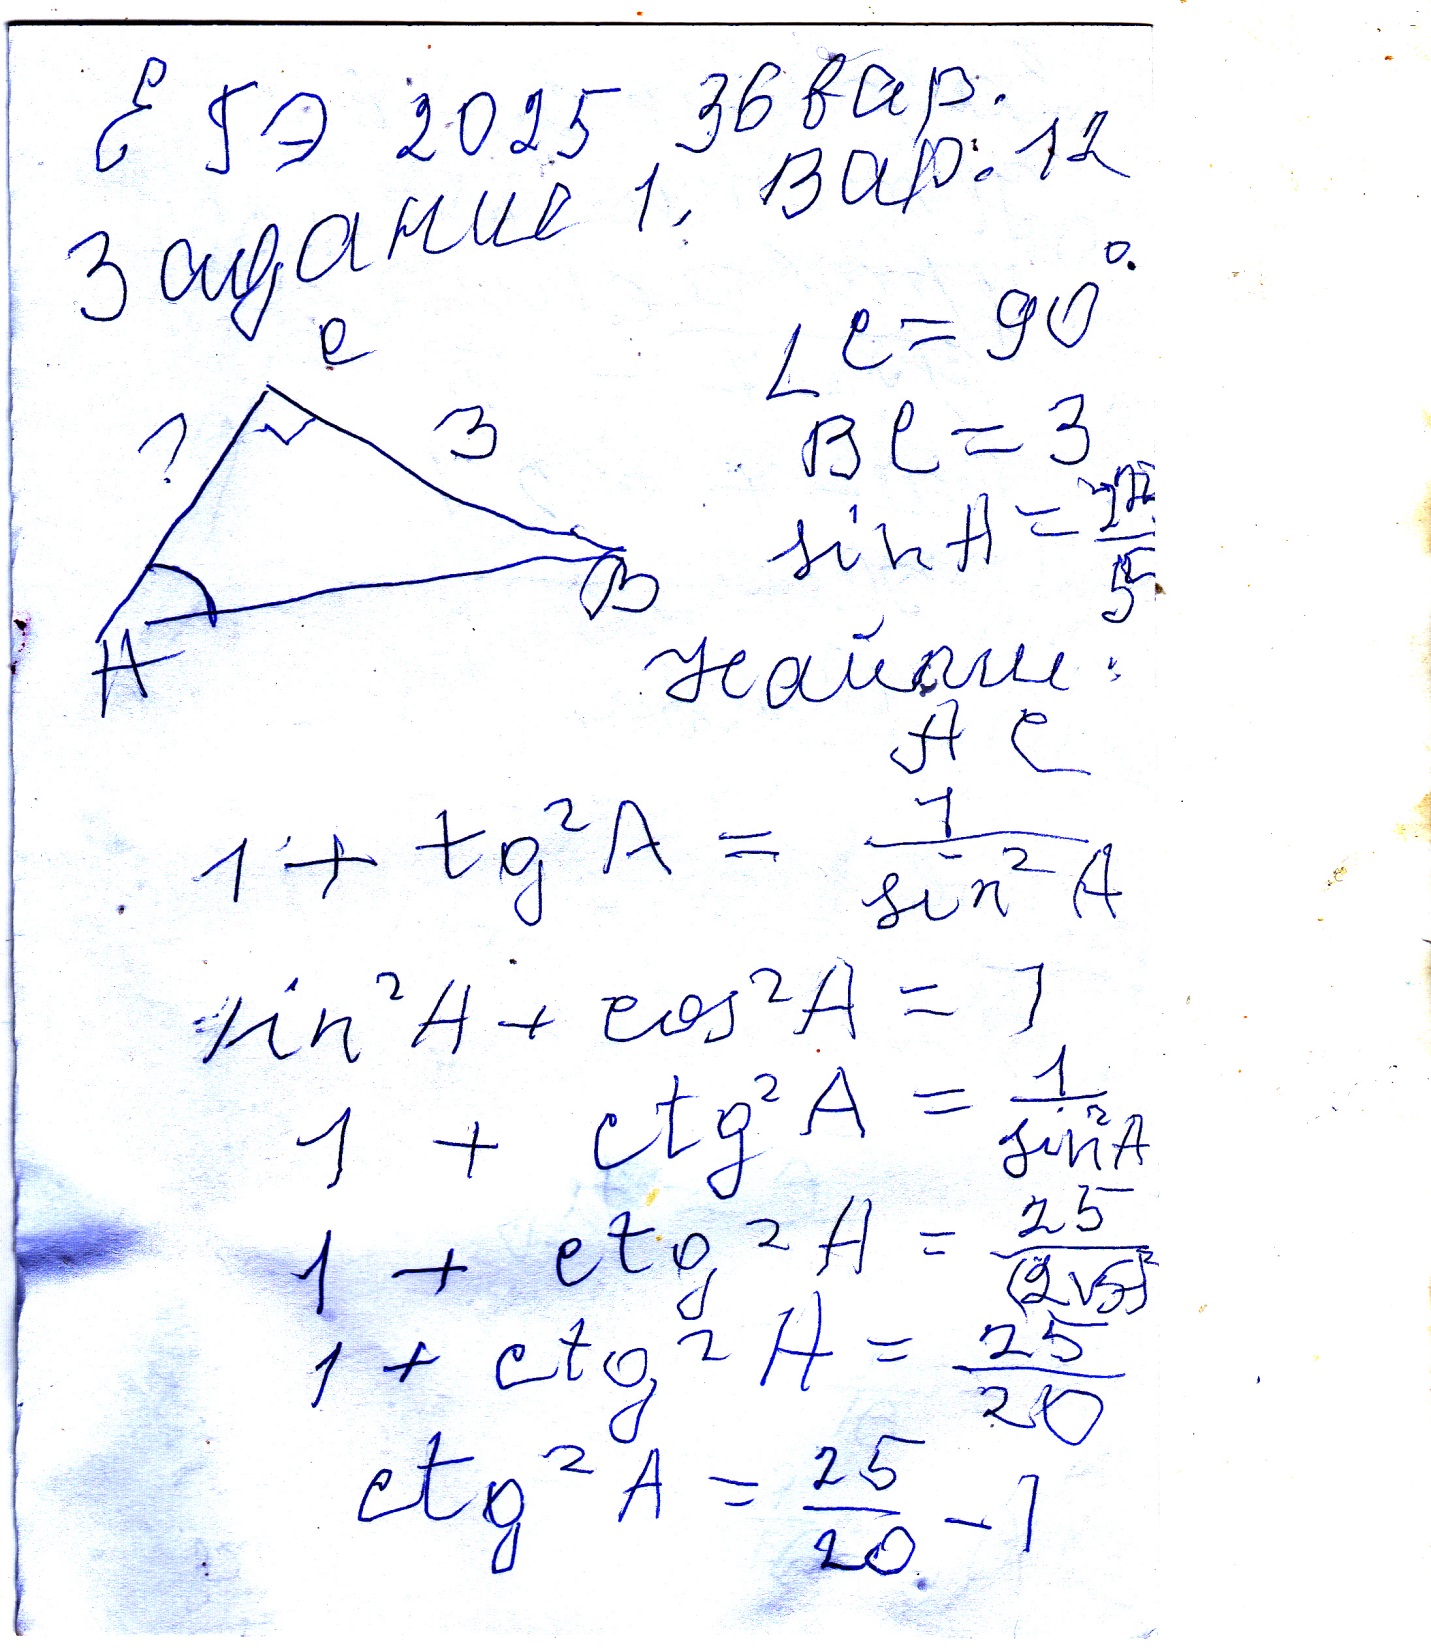 ЕГЭ 2025 36 вар.
Задание 1. Вар. 12
C
∠C = 90°.
? 3
BC = 3
sin A = 2√5/5
B
A
Найти:
AC
1 + tg²A = 1/sin²A
sin²A + cos²A = 1
1 + ctg²A = 1/sin²A
1 + ctg²A = 25/(2√5)²
1 + ctg²A = 25/20
ctg²A = 25/20 - 1